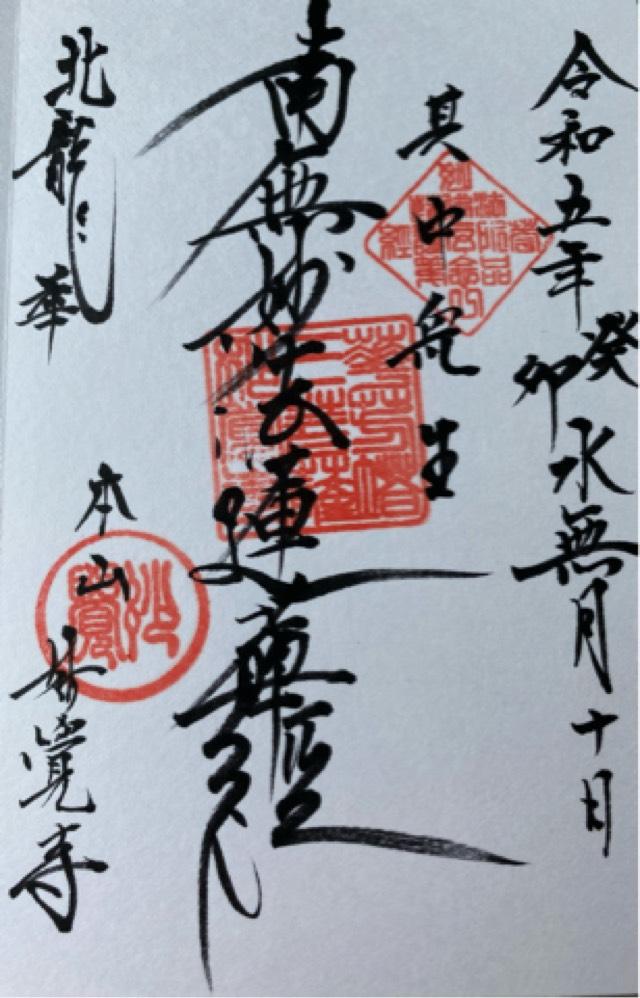 令和五年癸卯水無月十日
其中衆生
南無妙法蓮華経
北龍華
本山 妙覺寺
妙覺